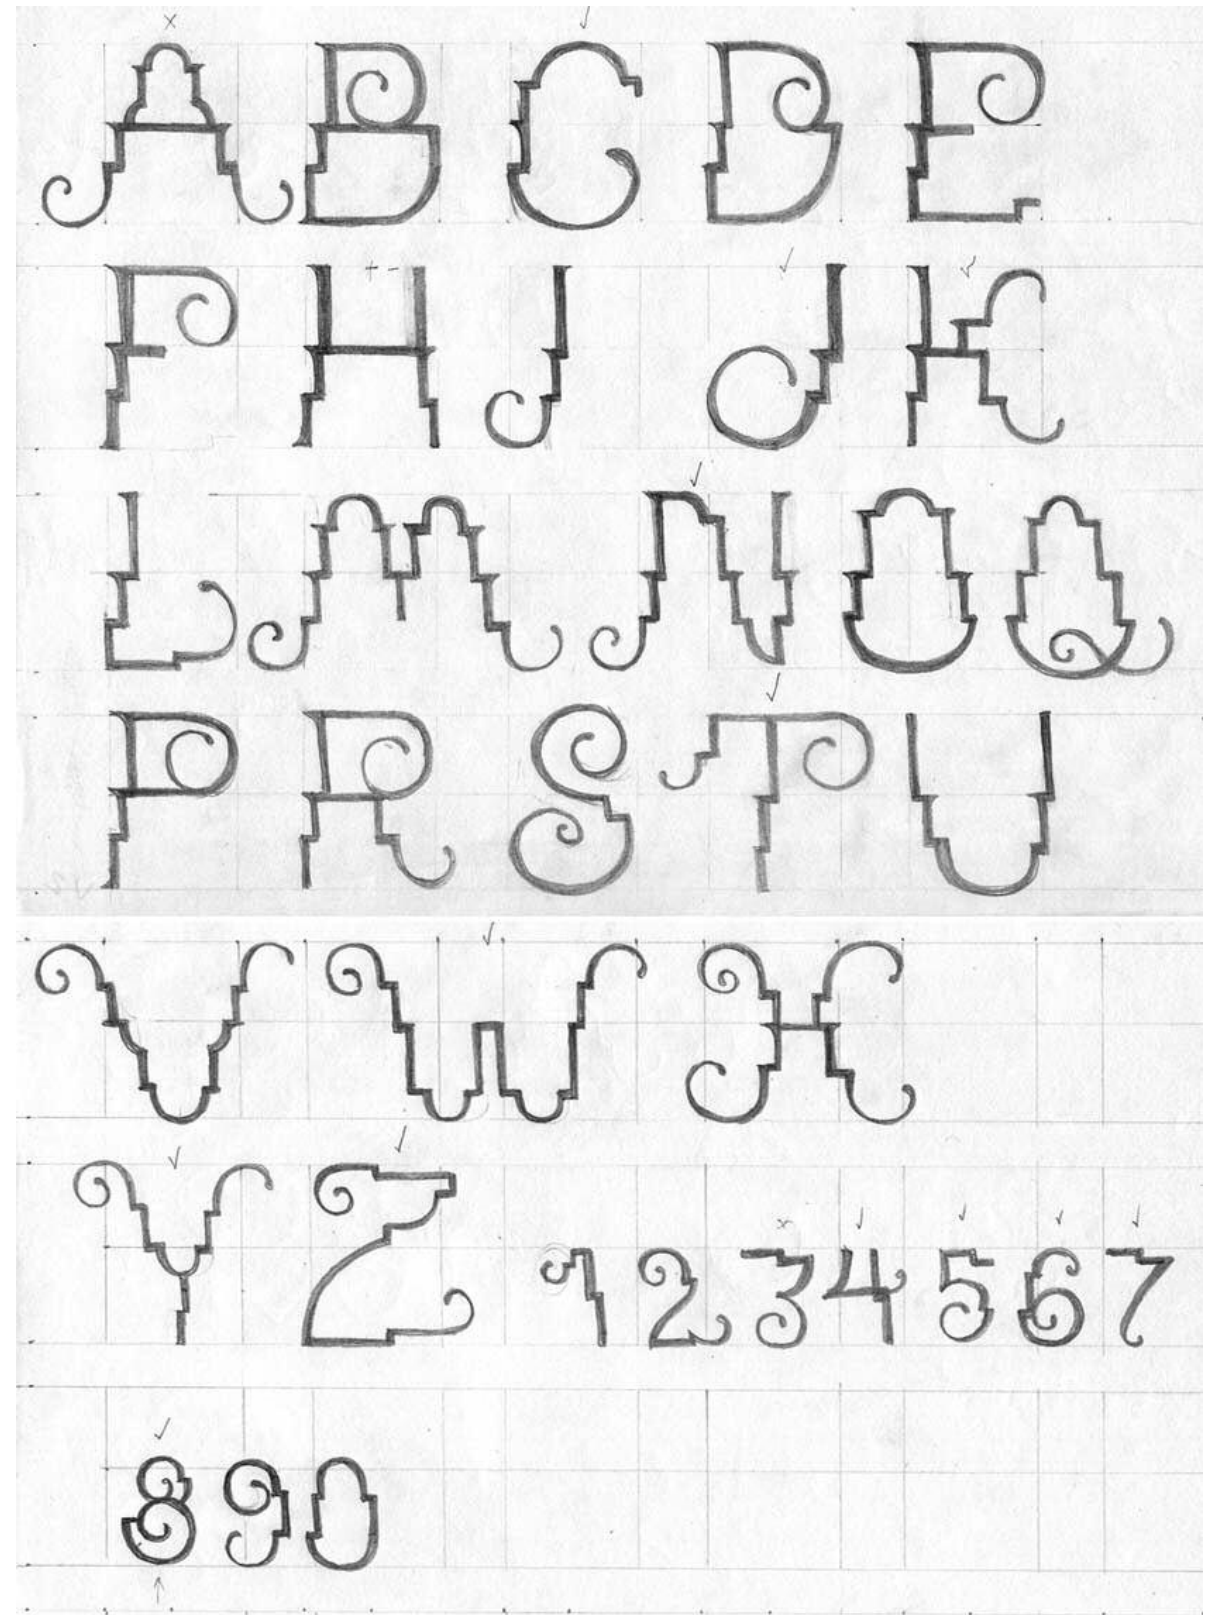 A B C D E
F H J J K
L M N O Q
P R S T U
V W X
Y Z 1 2 3 4 5 6 7
8 9 0